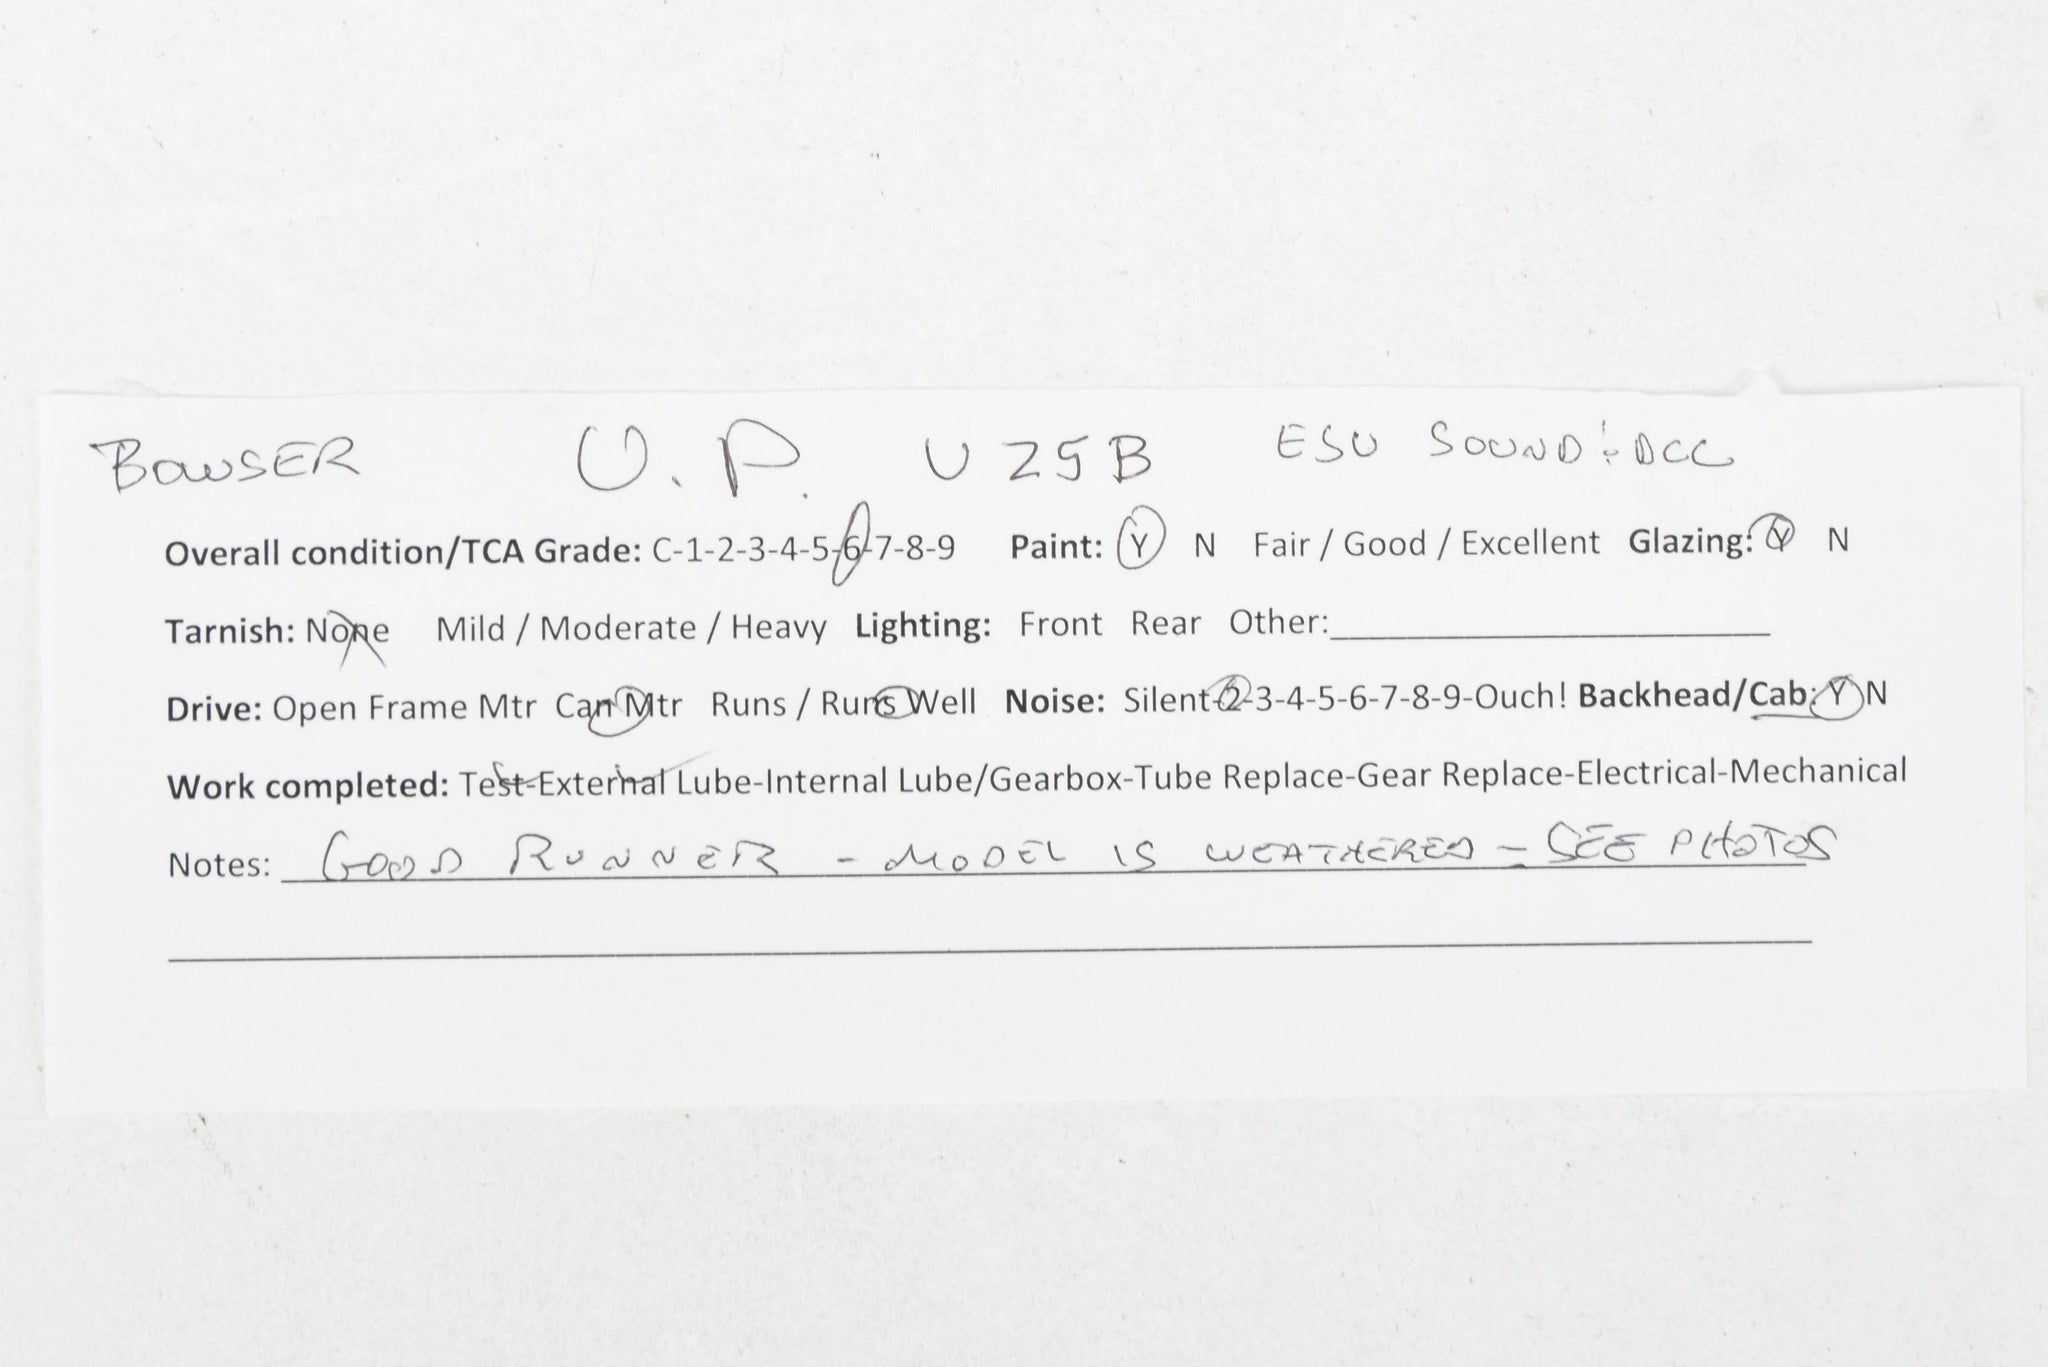 BOWSER U.P. U25B ESU SOUND & DCC
Overall condition/TCA Grade: C-1-2-3-4-5-6-7-8-9 Paint: Y N Fair / Good / Excellent Glazing: Y N
Tarnish: None Mild / Moderate / Heavy Lighting: Front Rear Other:
Drive: Open Frame Mtr Can Mtr Runs / Runs Well Noise: Silent-2-3-4-5-6-7-8-9-Ouch! Backhead/Cab: Y N
Work completed: Test-External Lube-Internal Lube/Gearbox-Tube Replace-Gear Replace-Electrical-Mechanical
Notes: GOOD RUNNER - MODEL IS WEATHERED - SEE PHOTOS